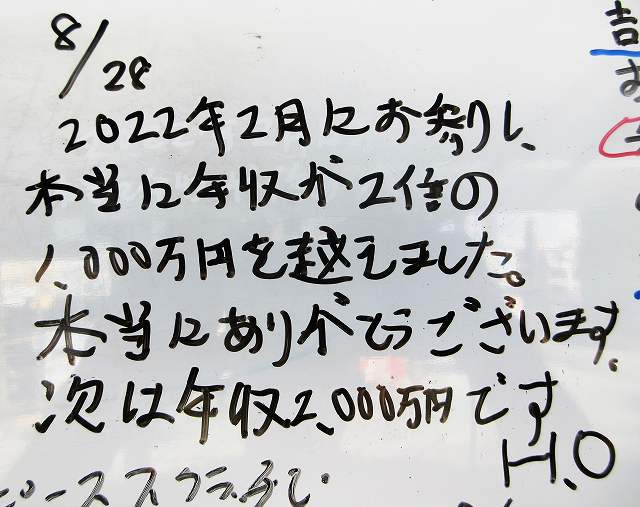 8/28
2022年2月にお参りし、
本当に年収が2倍の
1,000万円を越えました。
本当にありがとうございます。
次は年収2,000万円です
H.O
ピーススクラッチで